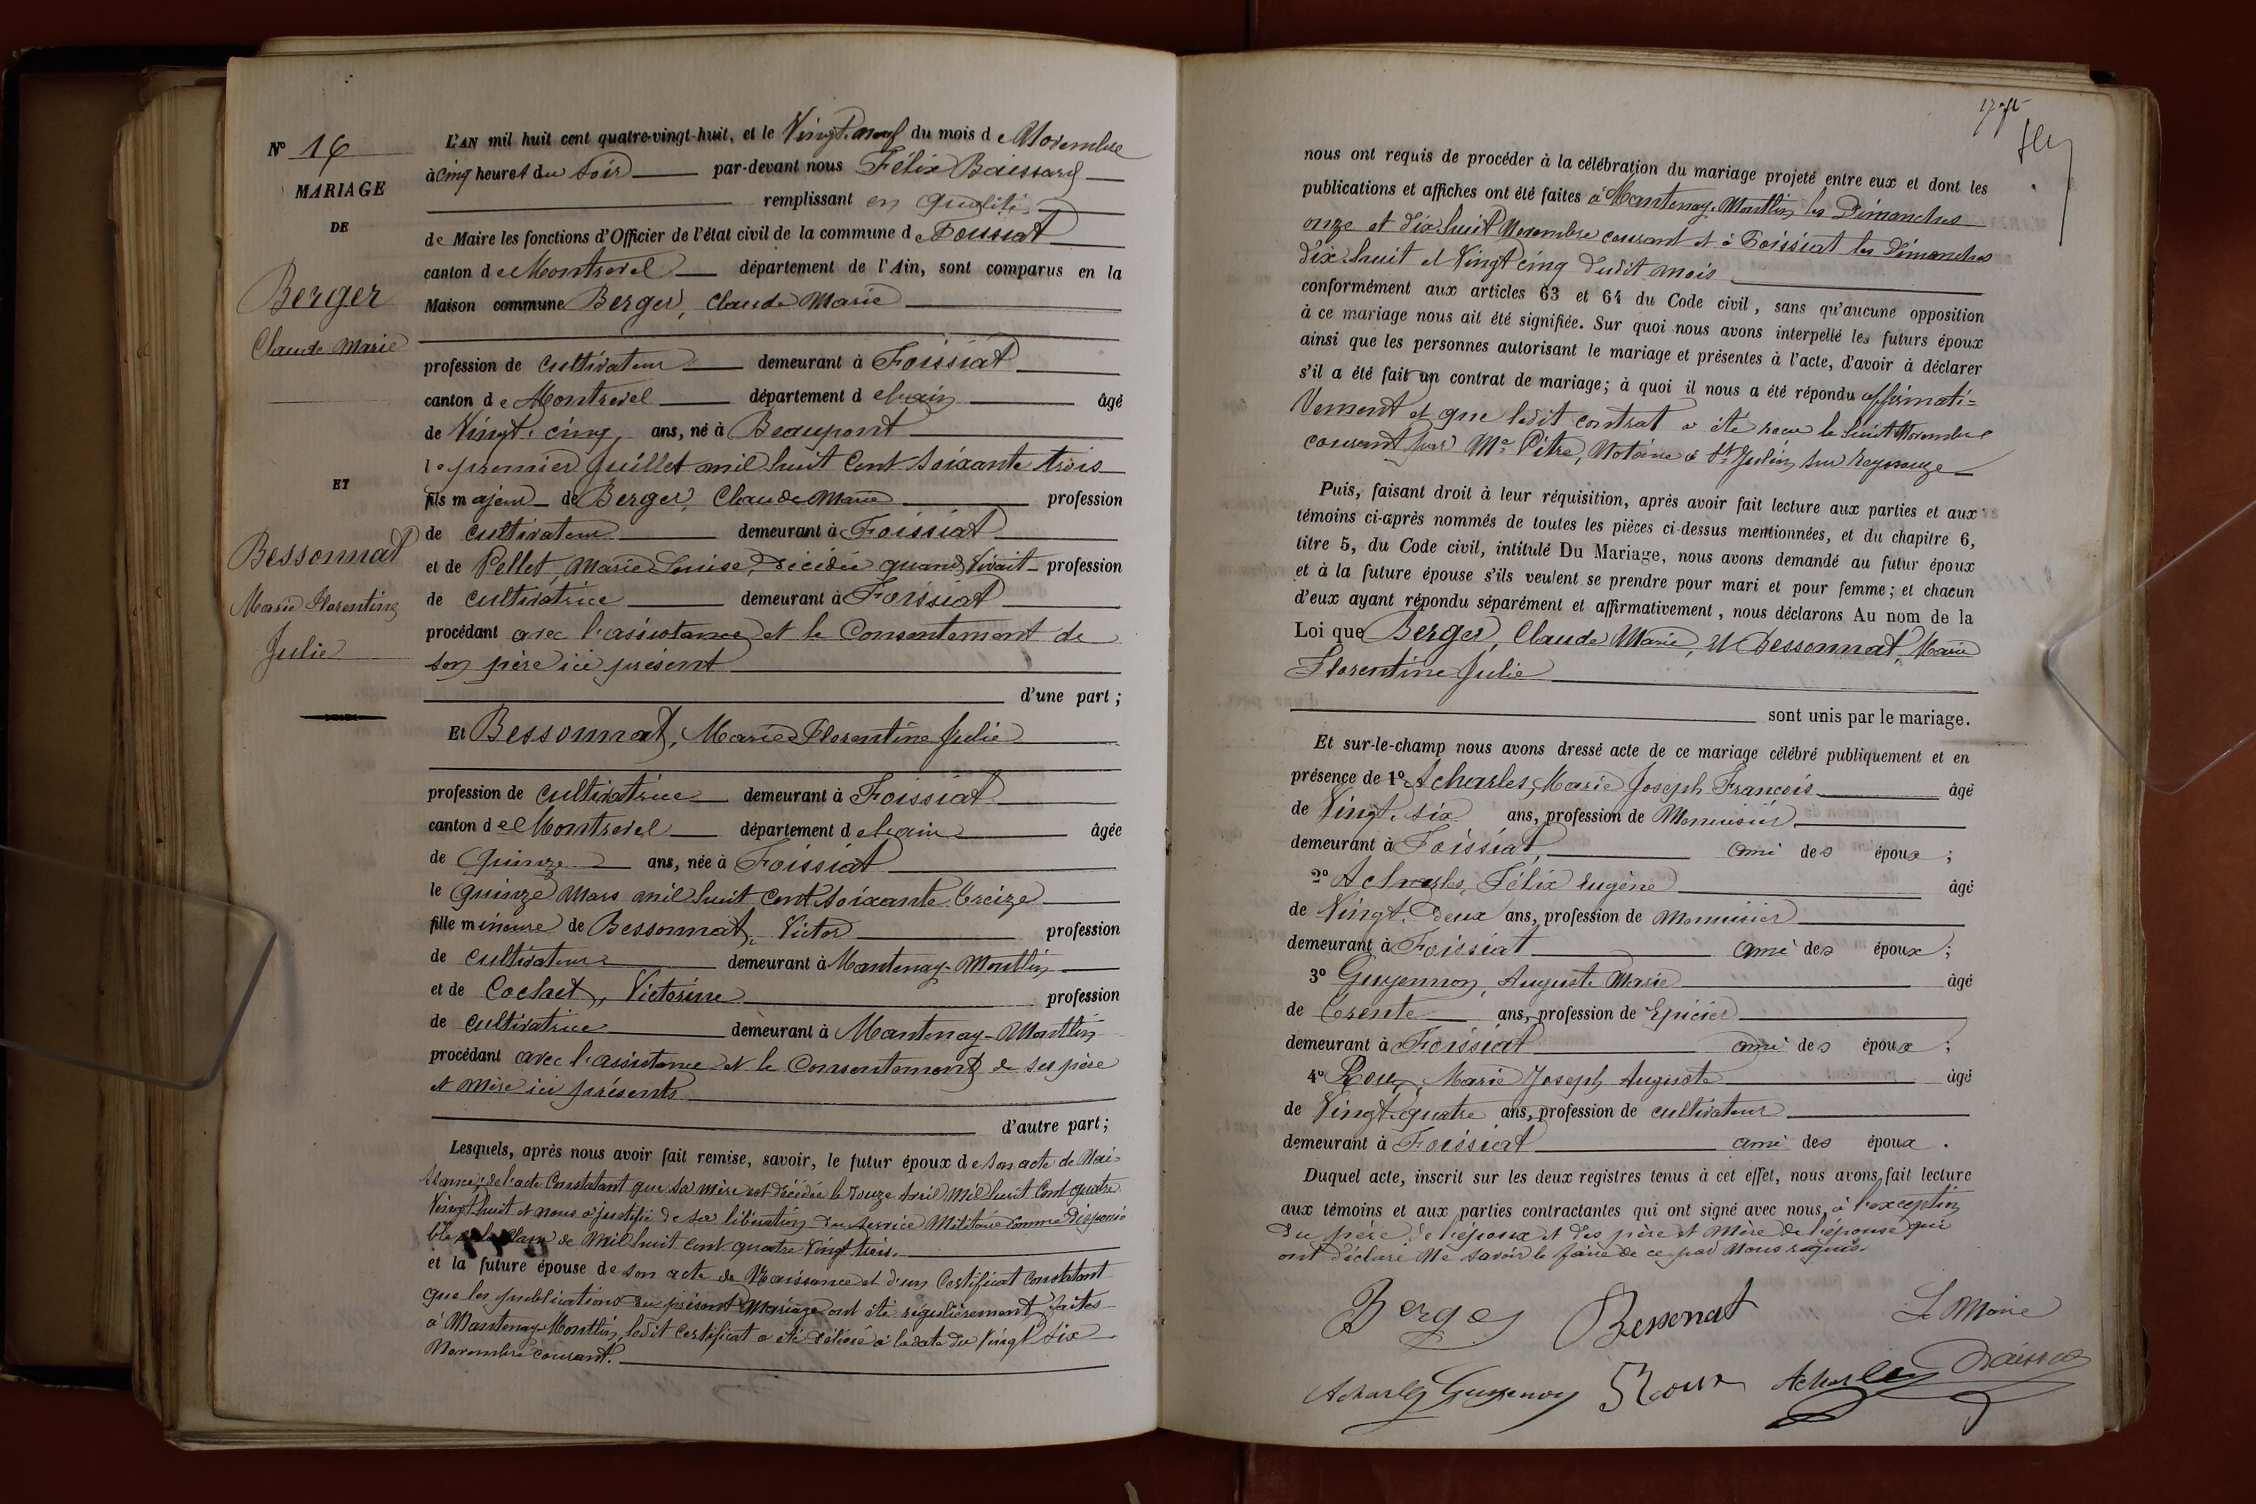 N° 16
MARIAGE
DE
Berger
Claude Marie
ET
Bessonnat
Marie Florentine
Julie
L'AN mil huit cent quatre-vingt-huit, et le Vingt-neuf du mois de Novembre
à cinq heures du soir par-devant nous Félix Baissard
remplissant en qualité
de Maire les fonctions d'Officier de l'état civil de la commune de Foissiat
canton de Montrevel département de l'Ain, sont comparus en la
Maison commune Berger, Claude Marie
profession de cultivateur demeurant à Foissiat
canton de Montrevel département de l'ain âgé
de Vingt-cinq ans, né à Beaupont
le premier Juillet mil huit cent soixante trois
fils majeur de Berger, Claude Marie profession
de cultivateur demeurant à Foissiat
et de Pellet Marie Louise, décédée quand vivait profession
de cultivatrice demeurant à Foissiat
procédant avec l'assistance et le Consentement de
son père ici présent
d'une part ;
Et Bessonnat, Marie Florentine Julie
profession de cultivatrice demeurant à Foissiat
canton de Montrevel département de l'ain âgée
de quinze ans, née à Foissiat
le quinze Mars mil huit cent soixante treize
fille mineure de Bessonnat, Victor profession
de cultivateur demeurant à Mantenay-Montlin
et de Cochet, Victorine profession
de cultivatrice demeurant à Mantenay-Montlin
procédant avec l'assistance et le Consentement de ses père
et mère ici présents
d'autre part ;
Lesquels, après nous avoir fait remise, savoir, le futur époux de son acte de Nai-
ssance, de l'acte Constatant que sa mère est décédée le douze Avril Mil huit Cent quatre
Vingt huit et nous a justifié de sa libération du service Militaire comme disponi
ble de la classe de Mil huit cent quatre Vingt trois.
et la future épouse de son acte de Naissance et d'un Certificat Constatant
que les publications du présent Mariage ont été régulièrement faites
à Mantenay-Montlin, ledit certificat a été délivré à la date du Vingt six
Novembre courant.
nous ont requis de procéder à la célébration du mariage projeté entre eux et dont les
publications et affiches ont été faites à Mantenay-Montlin les Dimanches
onze et dix huit Novembre courant et à Foissiat les Dimanches
dix-huit et Vingt cinq dudit mois
conformément aux articles 63 et 64 du Code civil, sans qu'aucune opposition
à ce mariage nous ait été signifiée. Sur quoi nous avons interpellé les futurs époux
ainsi que les personnes autorisant le mariage et présentes à l'acte, d'avoir à déclarer
s'il a été fait un contrat de mariage ; à quoi il nous a été répondu affirmati=
Vement et que ledit contrat a été reçu le huit Novembre
courant par Me Pitre, Notaire à St Julien sur Reyssouze
Puis, faisant droit à leur réquisition, après avoir fait lecture aux parties et aux
témoins ci-après nommés de toutes les pièces ci-dessus mentionnées, et du chapitre 6,
titre 5, du Code civil, intitulé Du Mariage, nous avons demandé au futur époux
et à la future épouse s'ils veulent se prendre pour mari et pour femme ; et chacun
d'eux ayant répondu séparément et affirmativement, nous déclarons Au nom de la
Loi que Berger, Claude Marie, et Bessonnat, Marie
Florentine Julie
sont unis par le mariage.
Et sur-le-champ nous avons dressé acte de ce mariage célébré publiquement et en
présence de 1° Acharles, Marie Joseph François âgé
de Vingt-six ans, profession de Menuisier
demeurant à Foissiat, ami des époux ;
2° Acharles, Félix Eugène âgé
de Vingt-Deux ans, profession de Menuisier
demeurant à Foissiat ami des époux ;
3° Guyennon, Auguste Marie âgé
de trente ans, profession de Epicier
demeurant à Foissiat ami des époux ;
4° Roux, Marie Joseph Auguste âgé
de Vingt-quatre ans, profession de cultivateur
demeurant à Foissiat ami des époux .
Duquel acte, inscrit sur les deux registres tenus à cet effet, nous avons fait lecture
aux témoins et aux parties contractantes qui ont signé avec nous, à l'exception
du père de l'époux et des père et mère de l'épouse qui
ont déclaré Ne savoir le faire de ce par Nous requis.
Berger Bessonat Le Maire
Acharles Guyenon Roux Acharles Baissard